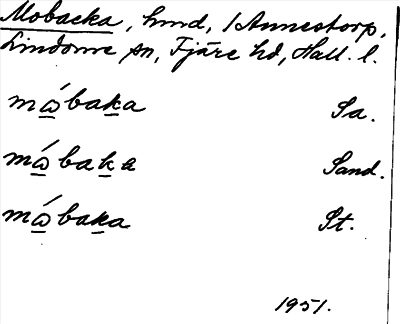 Mobacka, hmd, i Annestorp,
Lindome sn, Fjäre hd, Hall. l.
mώbaka Sa.
mώbaka Sand.
mώbaka St.
1951.